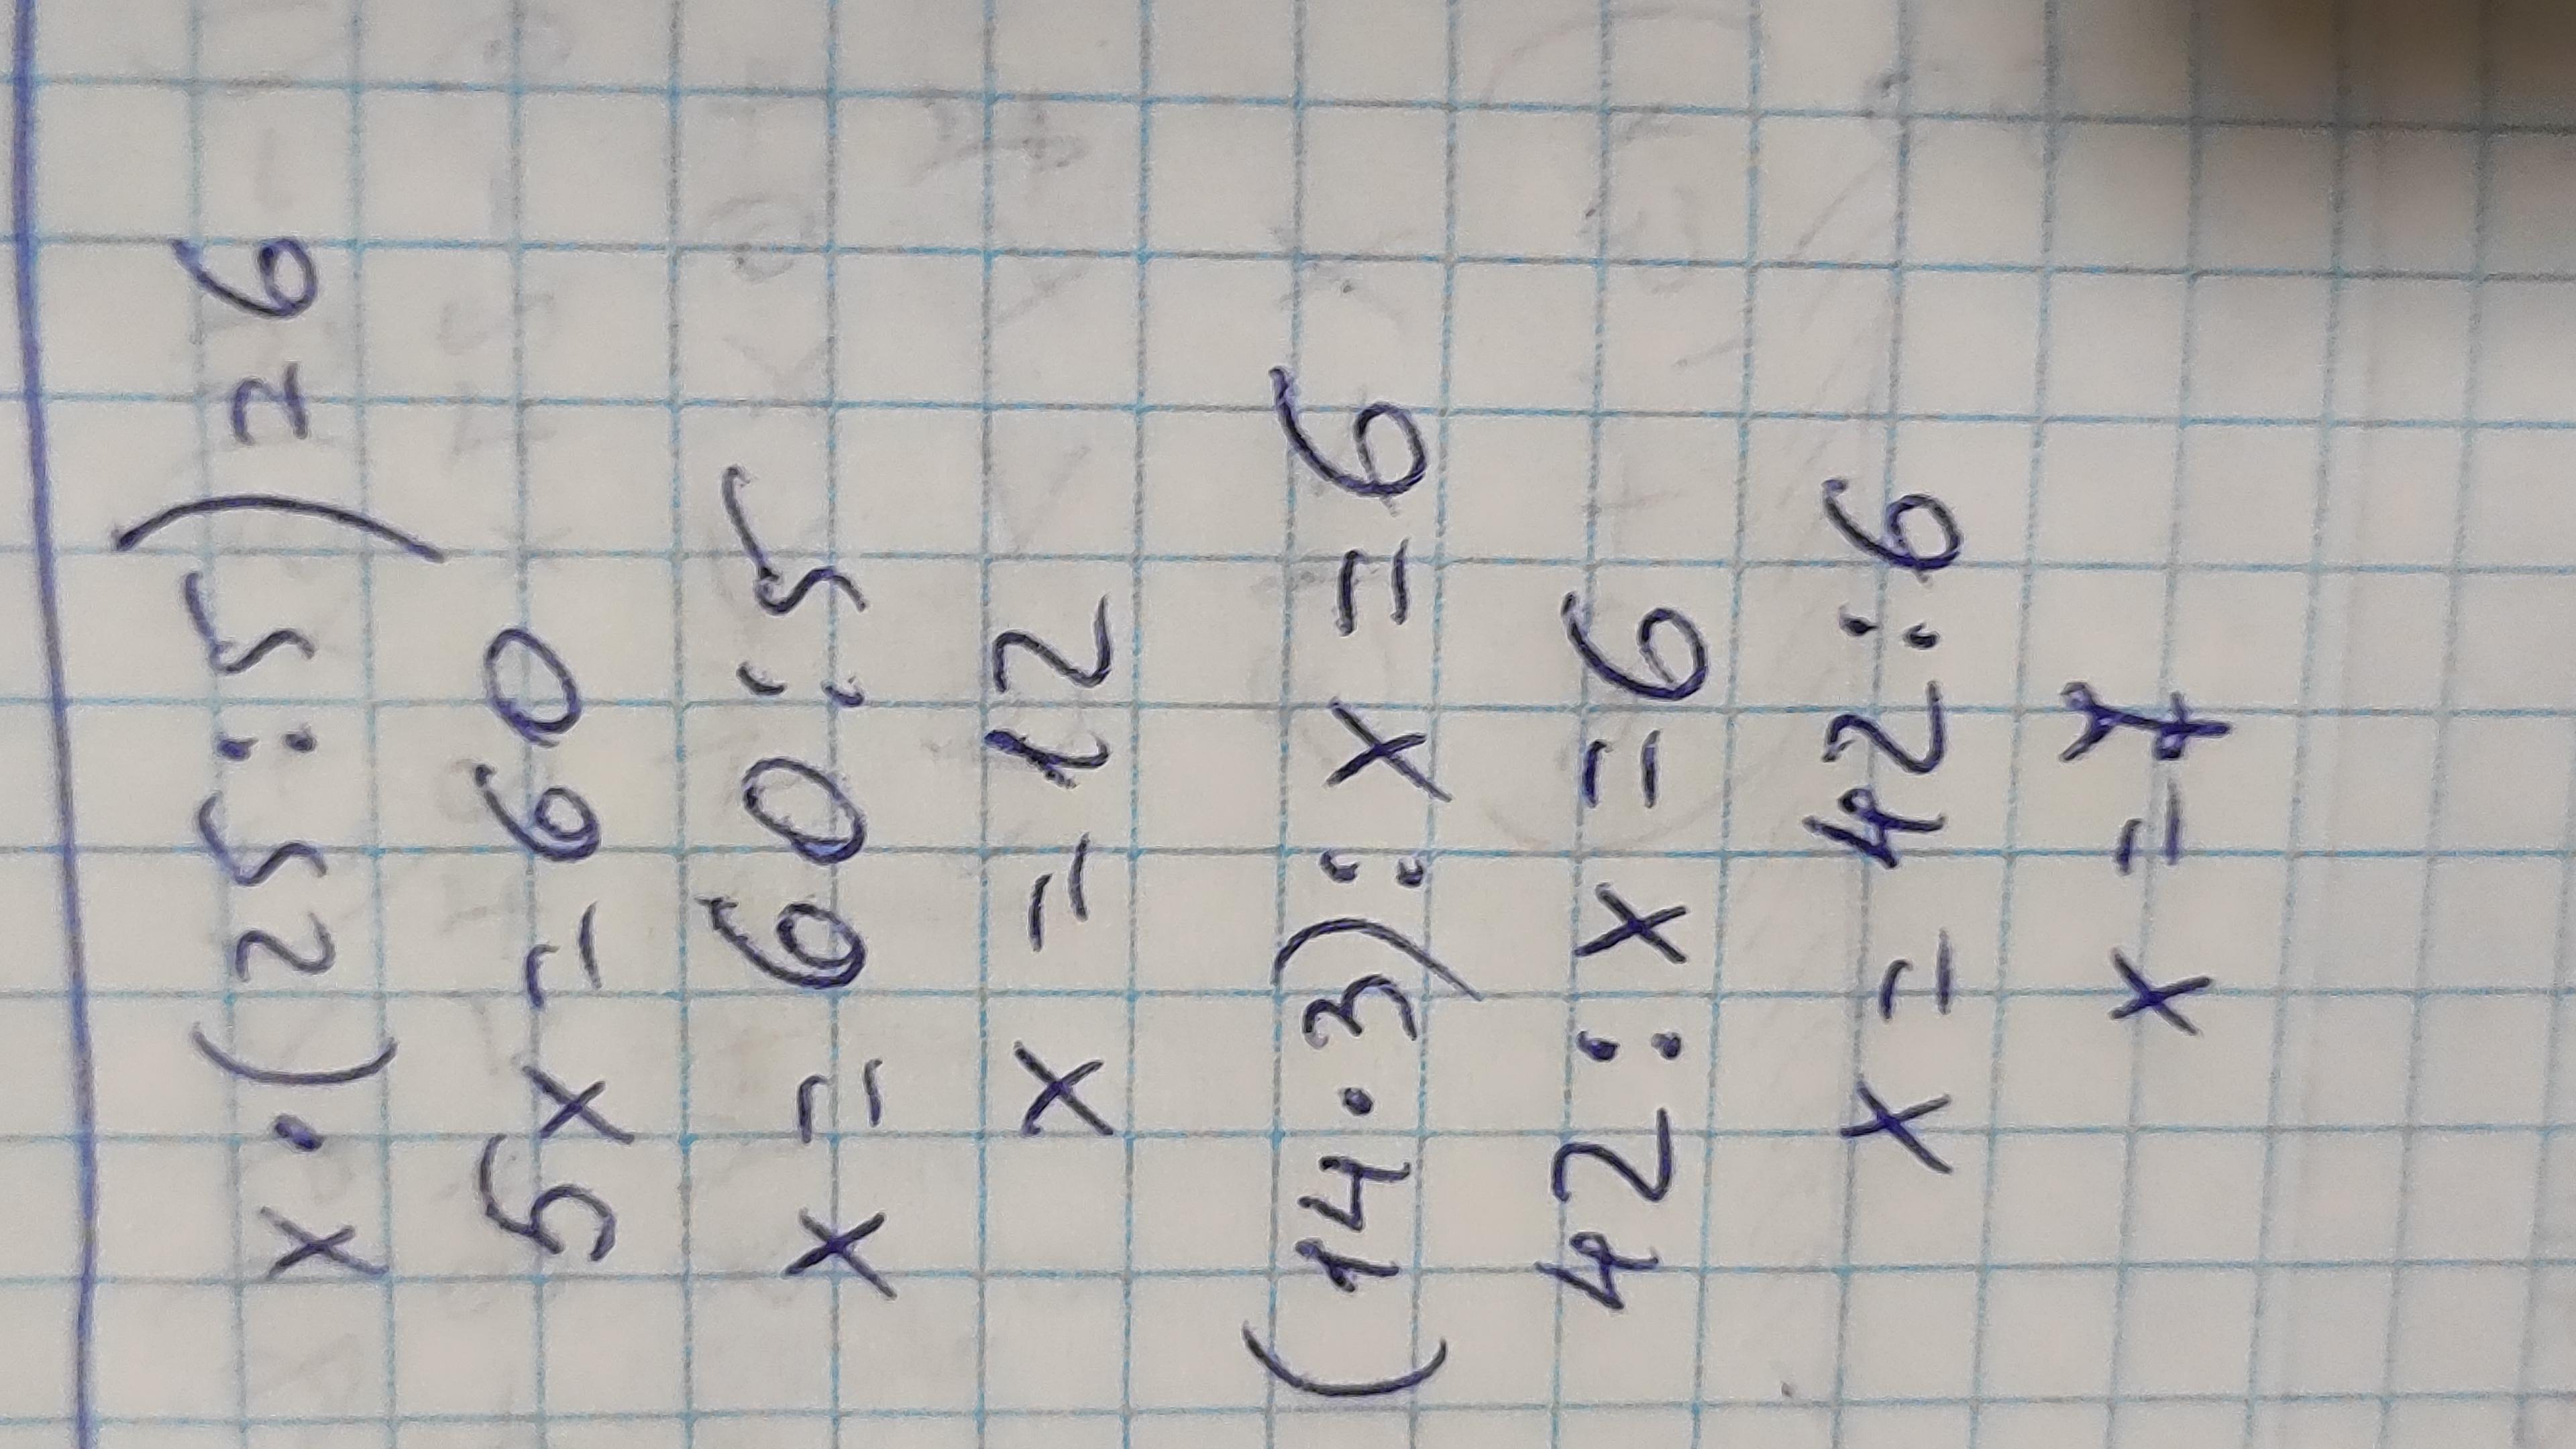 x · (25 : 5) = 6
5x = 60
x = 60 : 5
x = 12
(14 · 3) : x = 6
42 : x = 6
x = 42 : 6
x = 7